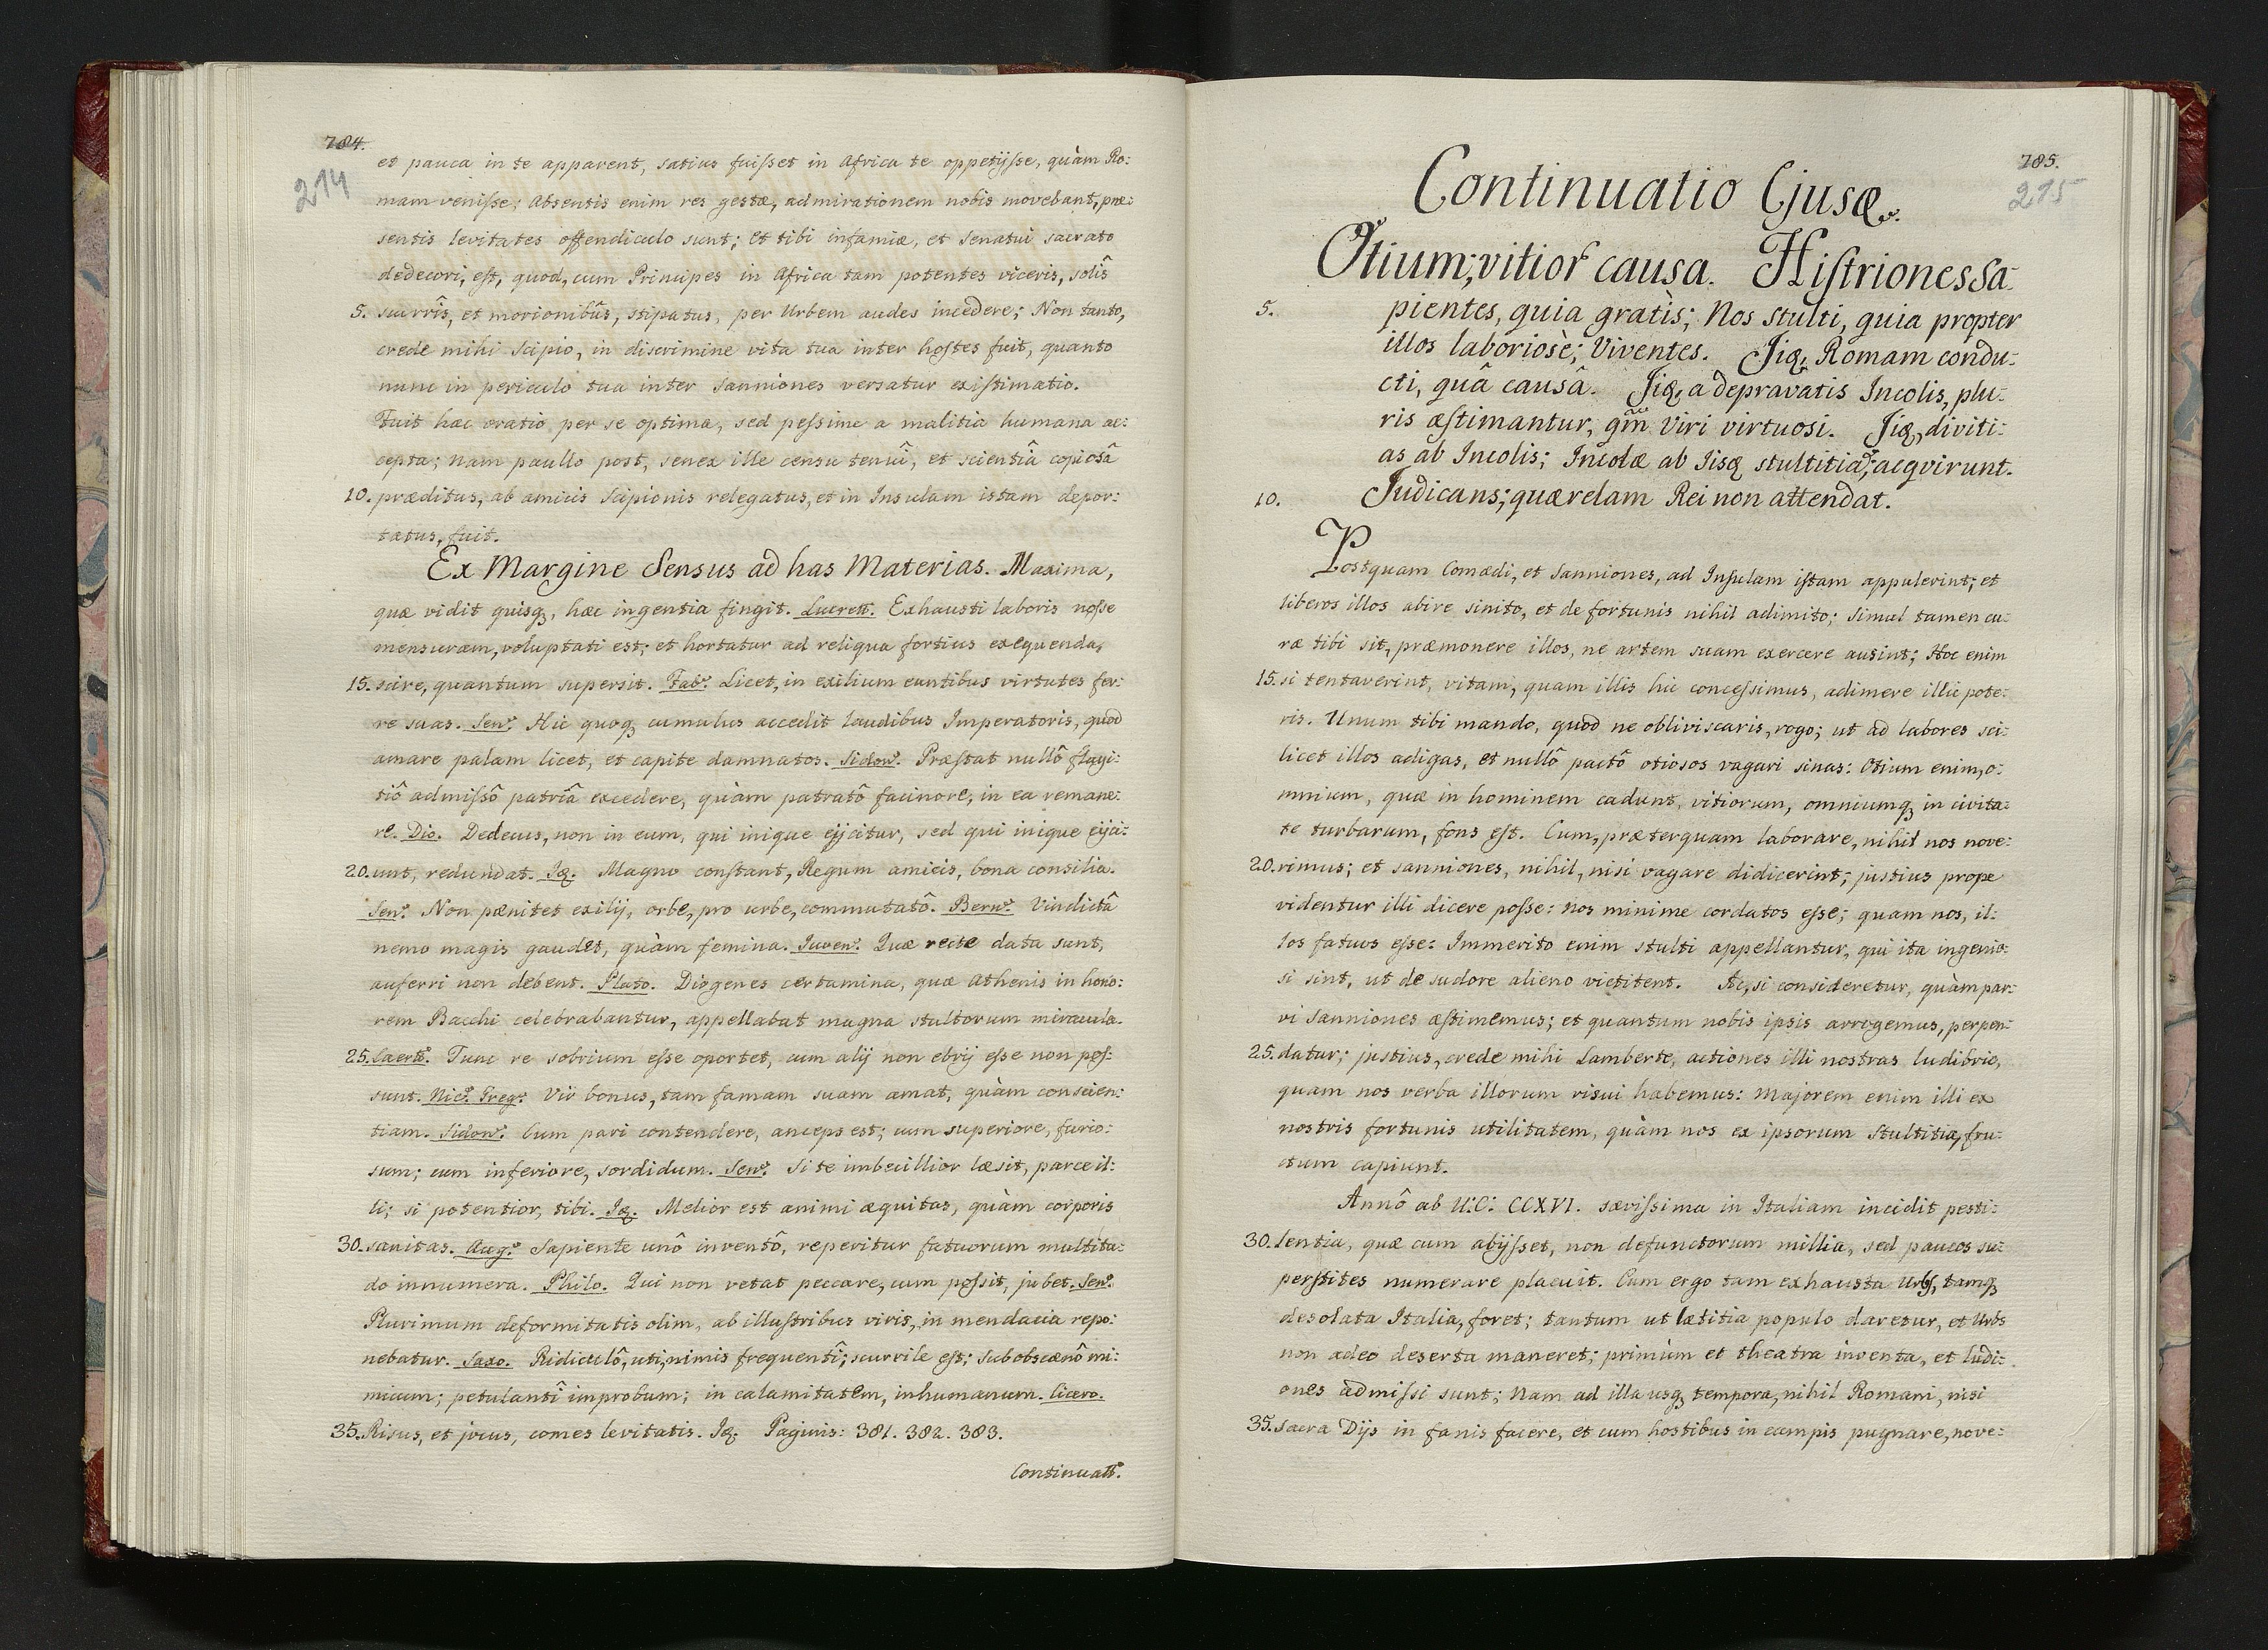 784.
214
et pauca in te apparent, satius fuiſset in Africa te oppetijſse, quàm Ro:
mam veniſse; Absentis enim res gestæ, admirationem nobis movebant, præ:
sentis levitates offendiculo sunt; Et tibi infamiæ, et Senatui sacrato
dedecori, eſt, quod, cum Principes in Africa tam potentes viceris, solîs
5. scurrîs, et morionibûs, stipatus, per Urbem audes incedere; Non tanto,
crede mihi Scipio, in discrimine vita tua inter hoſtes fuit, quanto
nunc in periculo tua inter Sanniones versatur exiſtimatio.
Fuit hæc oratio per se optima, sed peſsime a malitia humana ac:
cepta; Nam paullo post, senex ille censu tenuî, et scientiâ copiosâ
10. præditus, ab amicis Scipionis relegatus, et in Insulam istam depor:
tatus, fuit.
Ex Margine Sensus ad has Materias. Maxima,
quæ vidit quisq, hæc ingentia fingit. Lucrett. Exhausti laboris noſse
mensuram, voluptati est; et hortatur ad reliqua fortius exequenda,
15. scire, quantum supersit. Fab. Licet, in exilium euntibus virtutes fer:
re suas. Sen. Hic quoq cumulus accedit laudibus Imperatoris, quod
amare palam licet, et capite damnatos. Sidon. Præstat nullô flagi:
tiô admiſsô patriâ excedere, quàm patratô facinore, in ea remane:
re. Dio. Dedecus, non in eum, qui inique ejicitur, sed qui inique ejici:
20. unt, redundat. Iq. Magno conſtant, Regum amicis, bona consilia.
Sen. Non pænitet exilij, orbe, pro urbe, commutatô. Bern. Vindictâ
nemo magis gaudet, quàm femina. Juven. Quæ recte data sunt,
auferri non debent. Plato. Diogenes certamina, quæ Athenis in hono:
rem Bacchi celebrabantur, appellabat magna stultorum miracula.
25. Laert. Tunc te sobrium eſse oportet, cum alij non ebrij eſse non poſ:
sunt. Nic. Greg. Vir bonus, tam famam suam amat, quàm conscien:
tiam. Sidon. Cum pari contendere, anceps est; cum superiore, furio:
sum; cum inferiore, sordidum. Sen. Si te imbecillior læsit, parce il:
li; si potentior, tibi. Iq. Melior est animi æquitas, quàm corporis
30. sanitas. Aug. Sapiente unô inventô, reperitur fatuorum multitu:
do innumera. Philo. Qui non vetat peccare, cum poſsit, jubet. Sen.
Plurimum deformitatis olim, ab illuſtribus viris, in mendacia repo:
nebatur. Saxo. Ridiculô, uti, nimis frequentî; scurrile eſt; subobscænô mi:
micum; petulantî improbum; in calamitatem, inhumanum. Cicero.
35. Risus, et jocus, comes levitatis. Iq. Paginis: 381. 382. 383.
Continuatt.
785.
215
Continuatio Ejusq.
Otium; vitior causa. Hiſtriones Sa:
5. pientes, quia gratis; Nos Stulti, quia propter
illos laboriosè; Viventes. Jiq, Romam condu:
cti, quâ causâ. Jiq, a depravatis Incolis, plu:
ris æſtimantur, qm Viri virtuosi. Jiq, diviti:
as ab Incolis; Incolæ ab Iisq stultitiã; acqvirunt.
10. Judicans; quærelam Rei non attendat.
Postquam Comædi, et Sanniones, ad Inſulam iſtam appulerint; et
liberos illos abire sinito, et de fortunis nihil adimito; Simul tamen cu:
ræ tibi sit, præmonere illos, ne artem suam exercere ausint; Hoc enim
15. si tentaverint, vitam, quam illis hic conceſsimus, adimere illic pote:
ris. Unum tibi mando, quod ne obliviscaris, rogo; ut ad labores sci:
licet illos adigas, et nullô pactô otiosos vagari sinas: Otium enim, o:
mnium, quæ in hominem cadunt, vitiorum, omniumq in civita:
te turbarum, fons eſt. Cum, præterquam laborare, nihil nos nove:
20. rimus; et sanniones, nihil, nisi vagare didicerint; justius prope
videntur illi dicere poſse: Nos minime cordatos eſse; quam nos, il:
los fatuos eſse: Immerito enim stulti appellantur, qui ita ingenio:
si sint, ut de sudore alieno victitent. Ac, si consideretur, quàm par:
vi Sanniones æſtimemus; et quantum nobis ipsis arrogemus, perpen:
25. datur; justius, crede mihi Lamberte, actiones illi nostras ludibrio,
quam nos verba illorum risui habemus: Majorem enim illi ex
nostris fortunis utilitatem, quàm nos ex ipsorum Stultitia, fru:
ctum capiunt.
Annô ab U:C: CCXVI. sæviſsima in Italiam incidit pesti:
30. lentia, quæ cum abijſset, non defunctorum millia, sed paucos su:
perſtites numerare placuit. Cum ergo tam exhausta Urbs, tamq
desolata Italia, foret; tantum ut lætitia populo daretur, et Urbs
non adeo deserta maneret; primùm et theatra inventa, et ludi:
ones admiſsi sunt; Nam ad illa usq tempora, nihil Romani, nisi
35. Sacra Dijs in fanis facere, et cum hostibus in campis pugnare, nove: